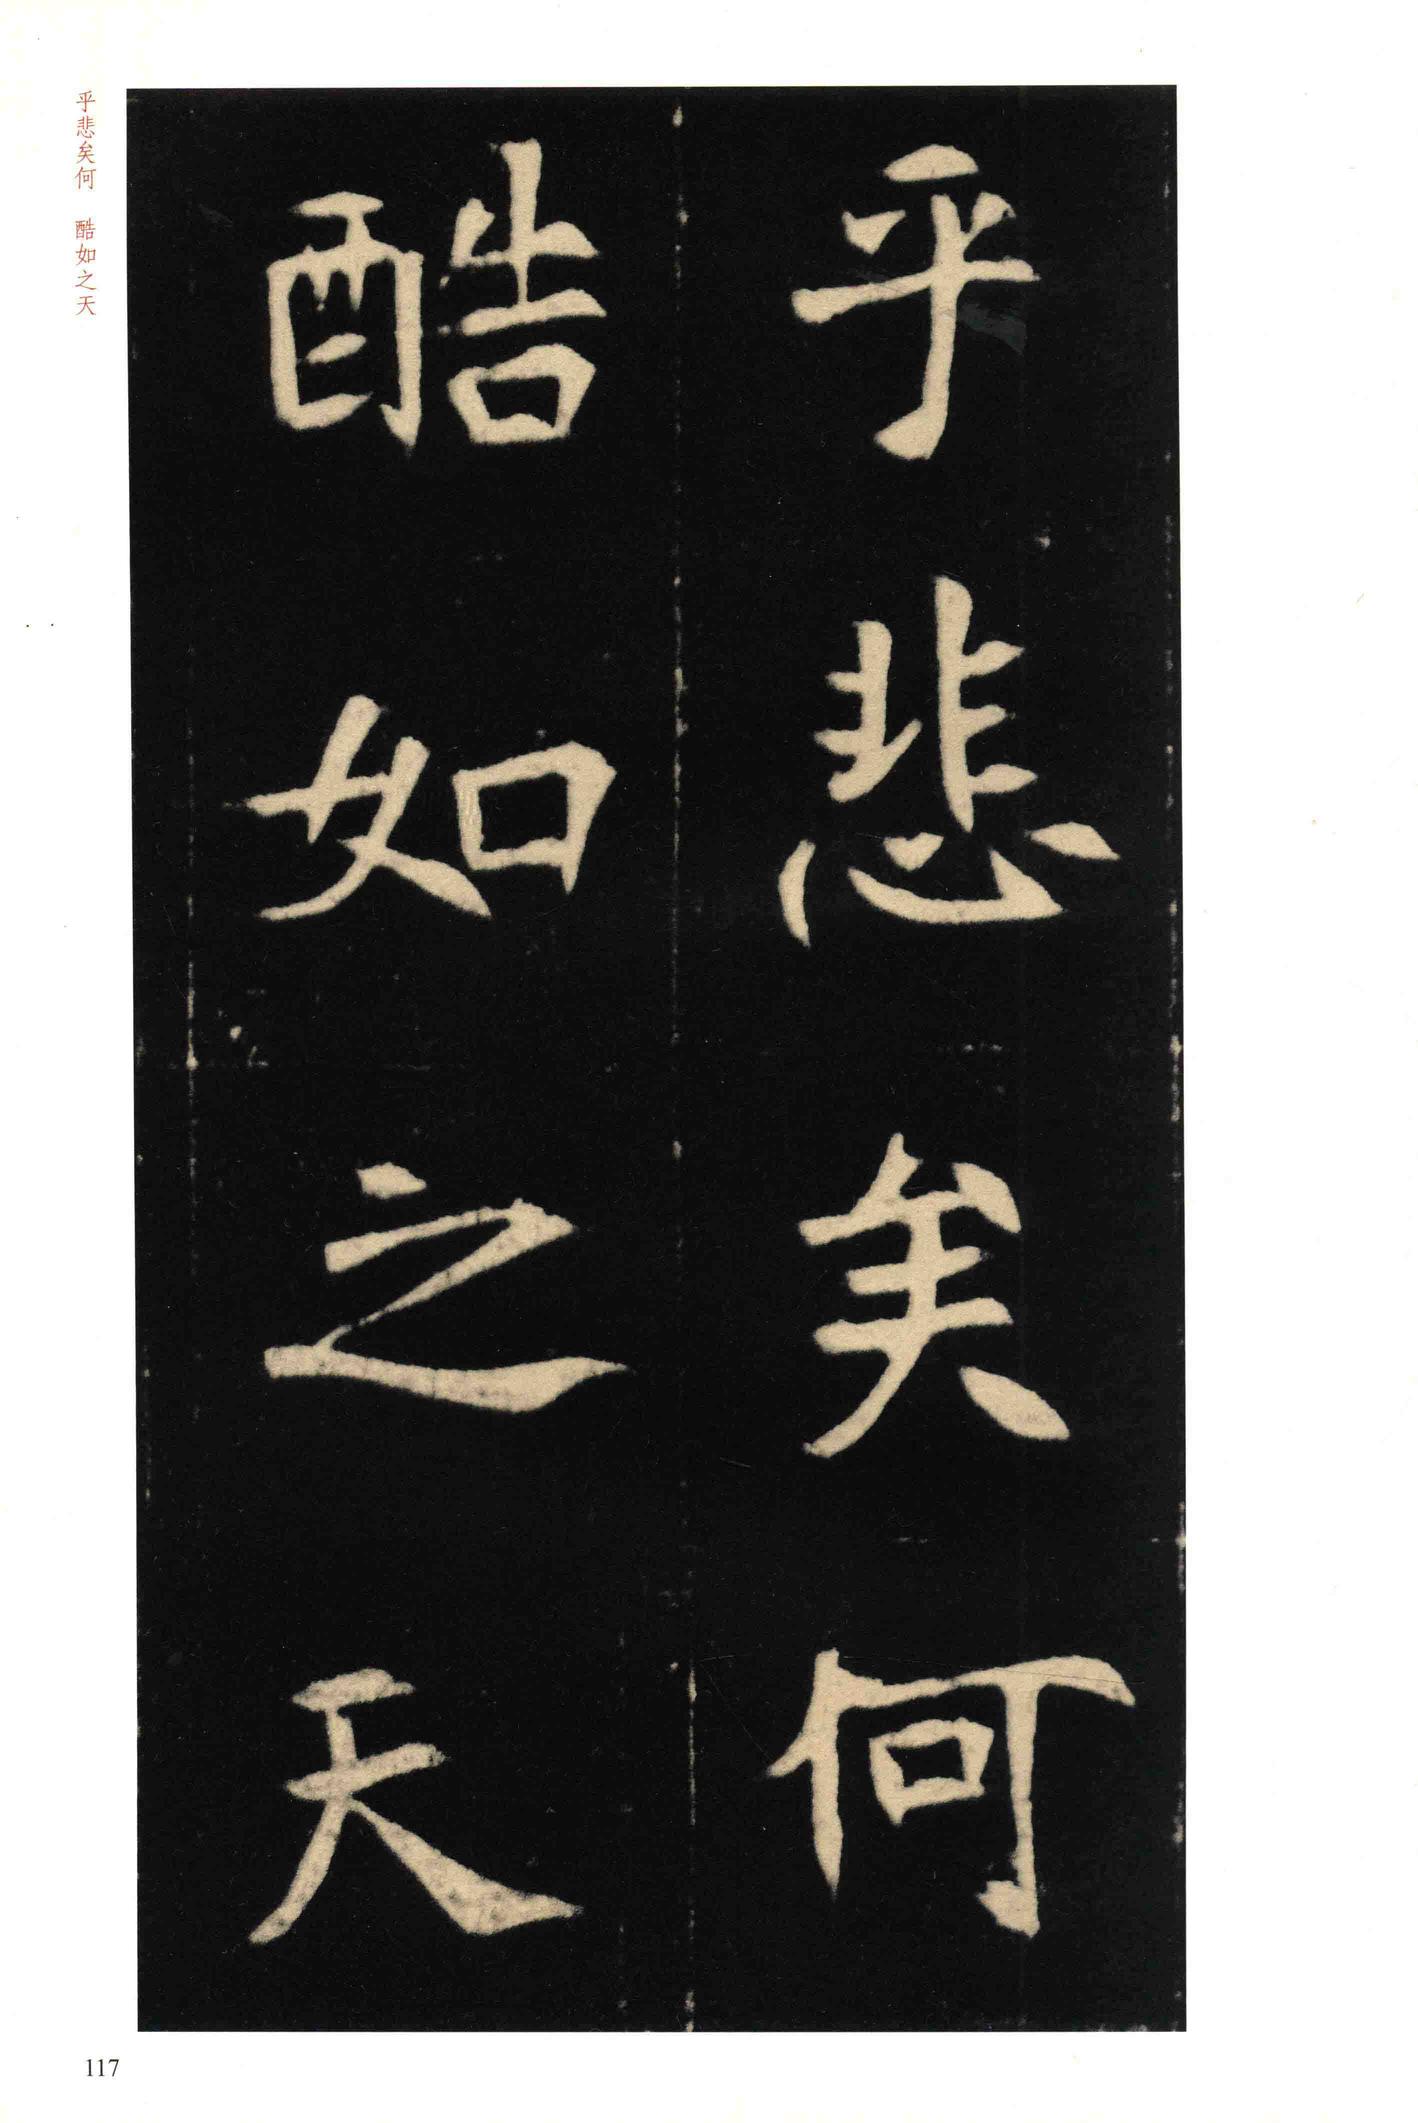 乎悲矣何
酷如之天
乎悲矣何 酷如之天
117